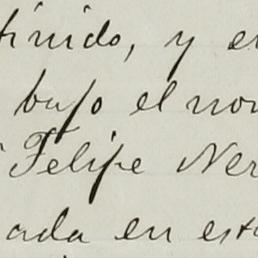 tinido, y e
bajo el no
Felipe Ner
ada en est